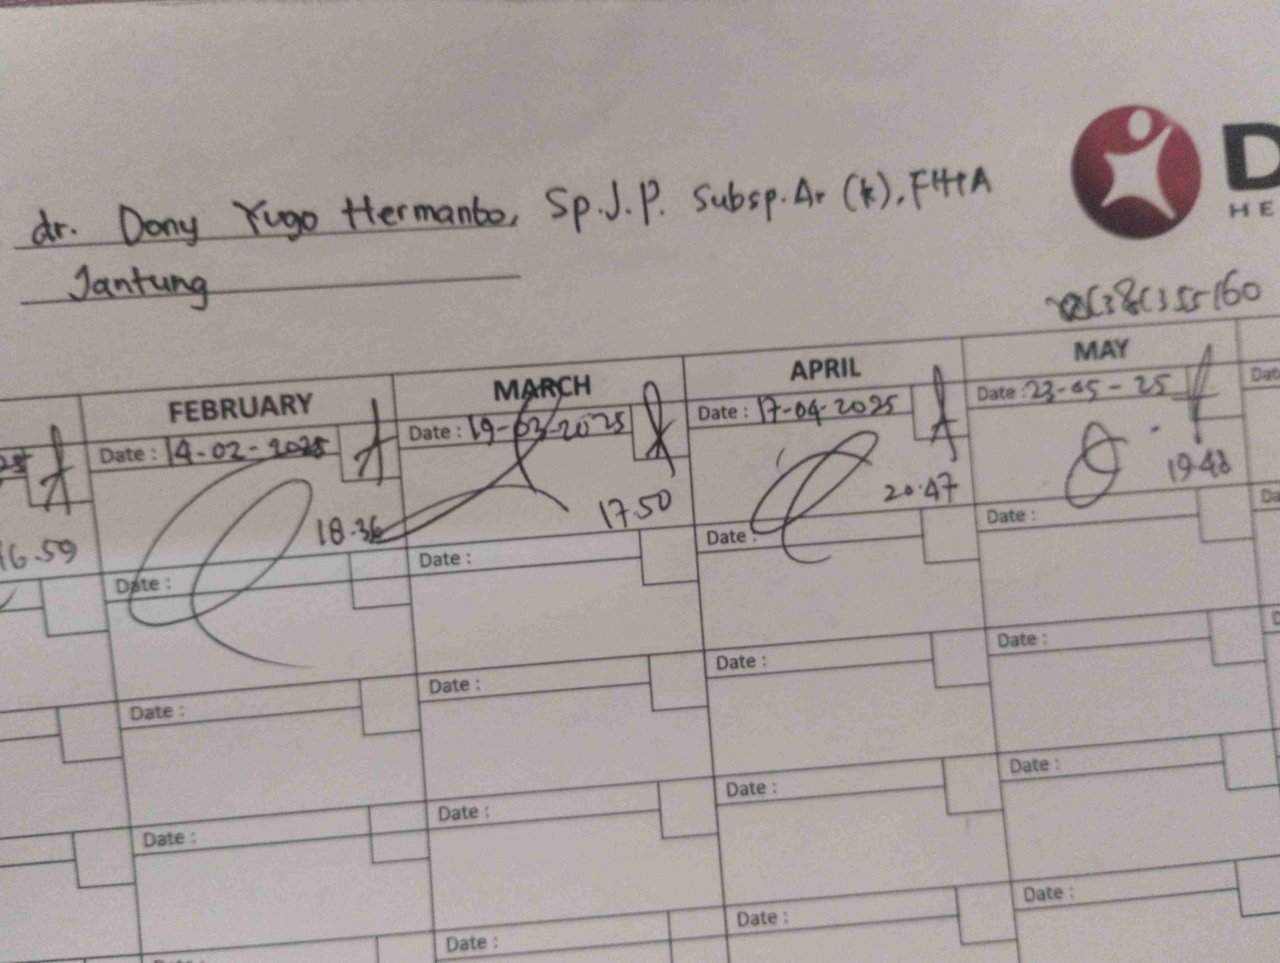 dr. Dony Yugo Hermanto, Sp.J.P. Subsp.Ar (k), FIHA
Jantung
D
HE
FEBRUARY
MARCH
APRIL
MAY
Date : 14-02-2025
Date : 19-03-2025
Date : 17-04-2025
Date : 23-05-25
Dat
16.59
18.36
17.50
20.47
19.48
Date :
Date :
Date :
Date :
Da
Date :
Date :
Date :
Date :
Date :
Date :
Date :
Date :
Date :
Date :
Date :